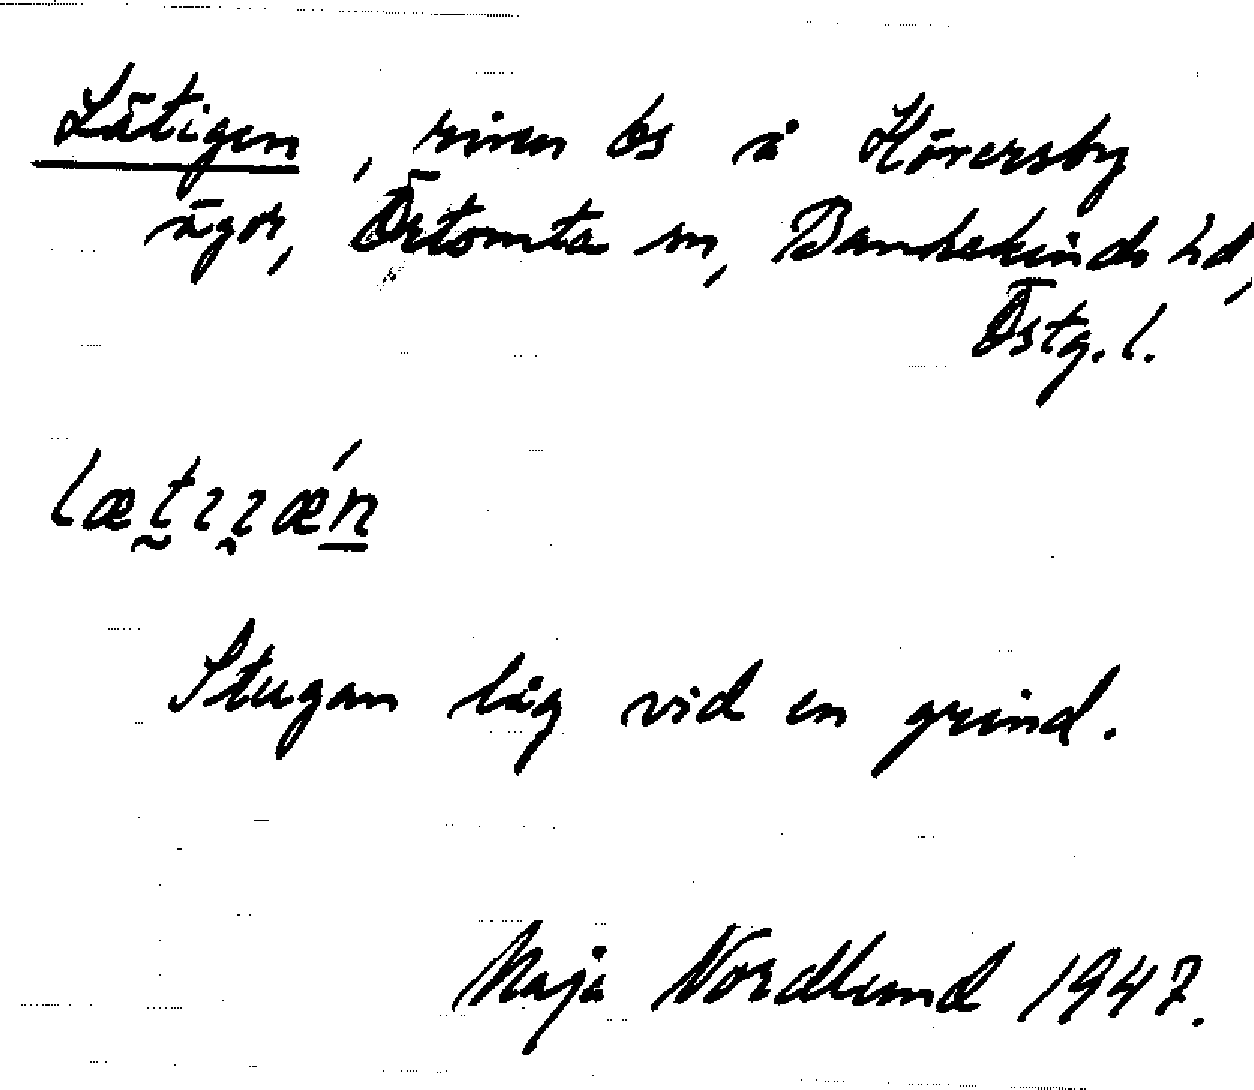 Lätigen, riven bs å Höversby
ägor, Örtomta sn, Bankekinds hd,
Östg. l.
Stugan låg vid en grind.
Maja Nordlund 1947.